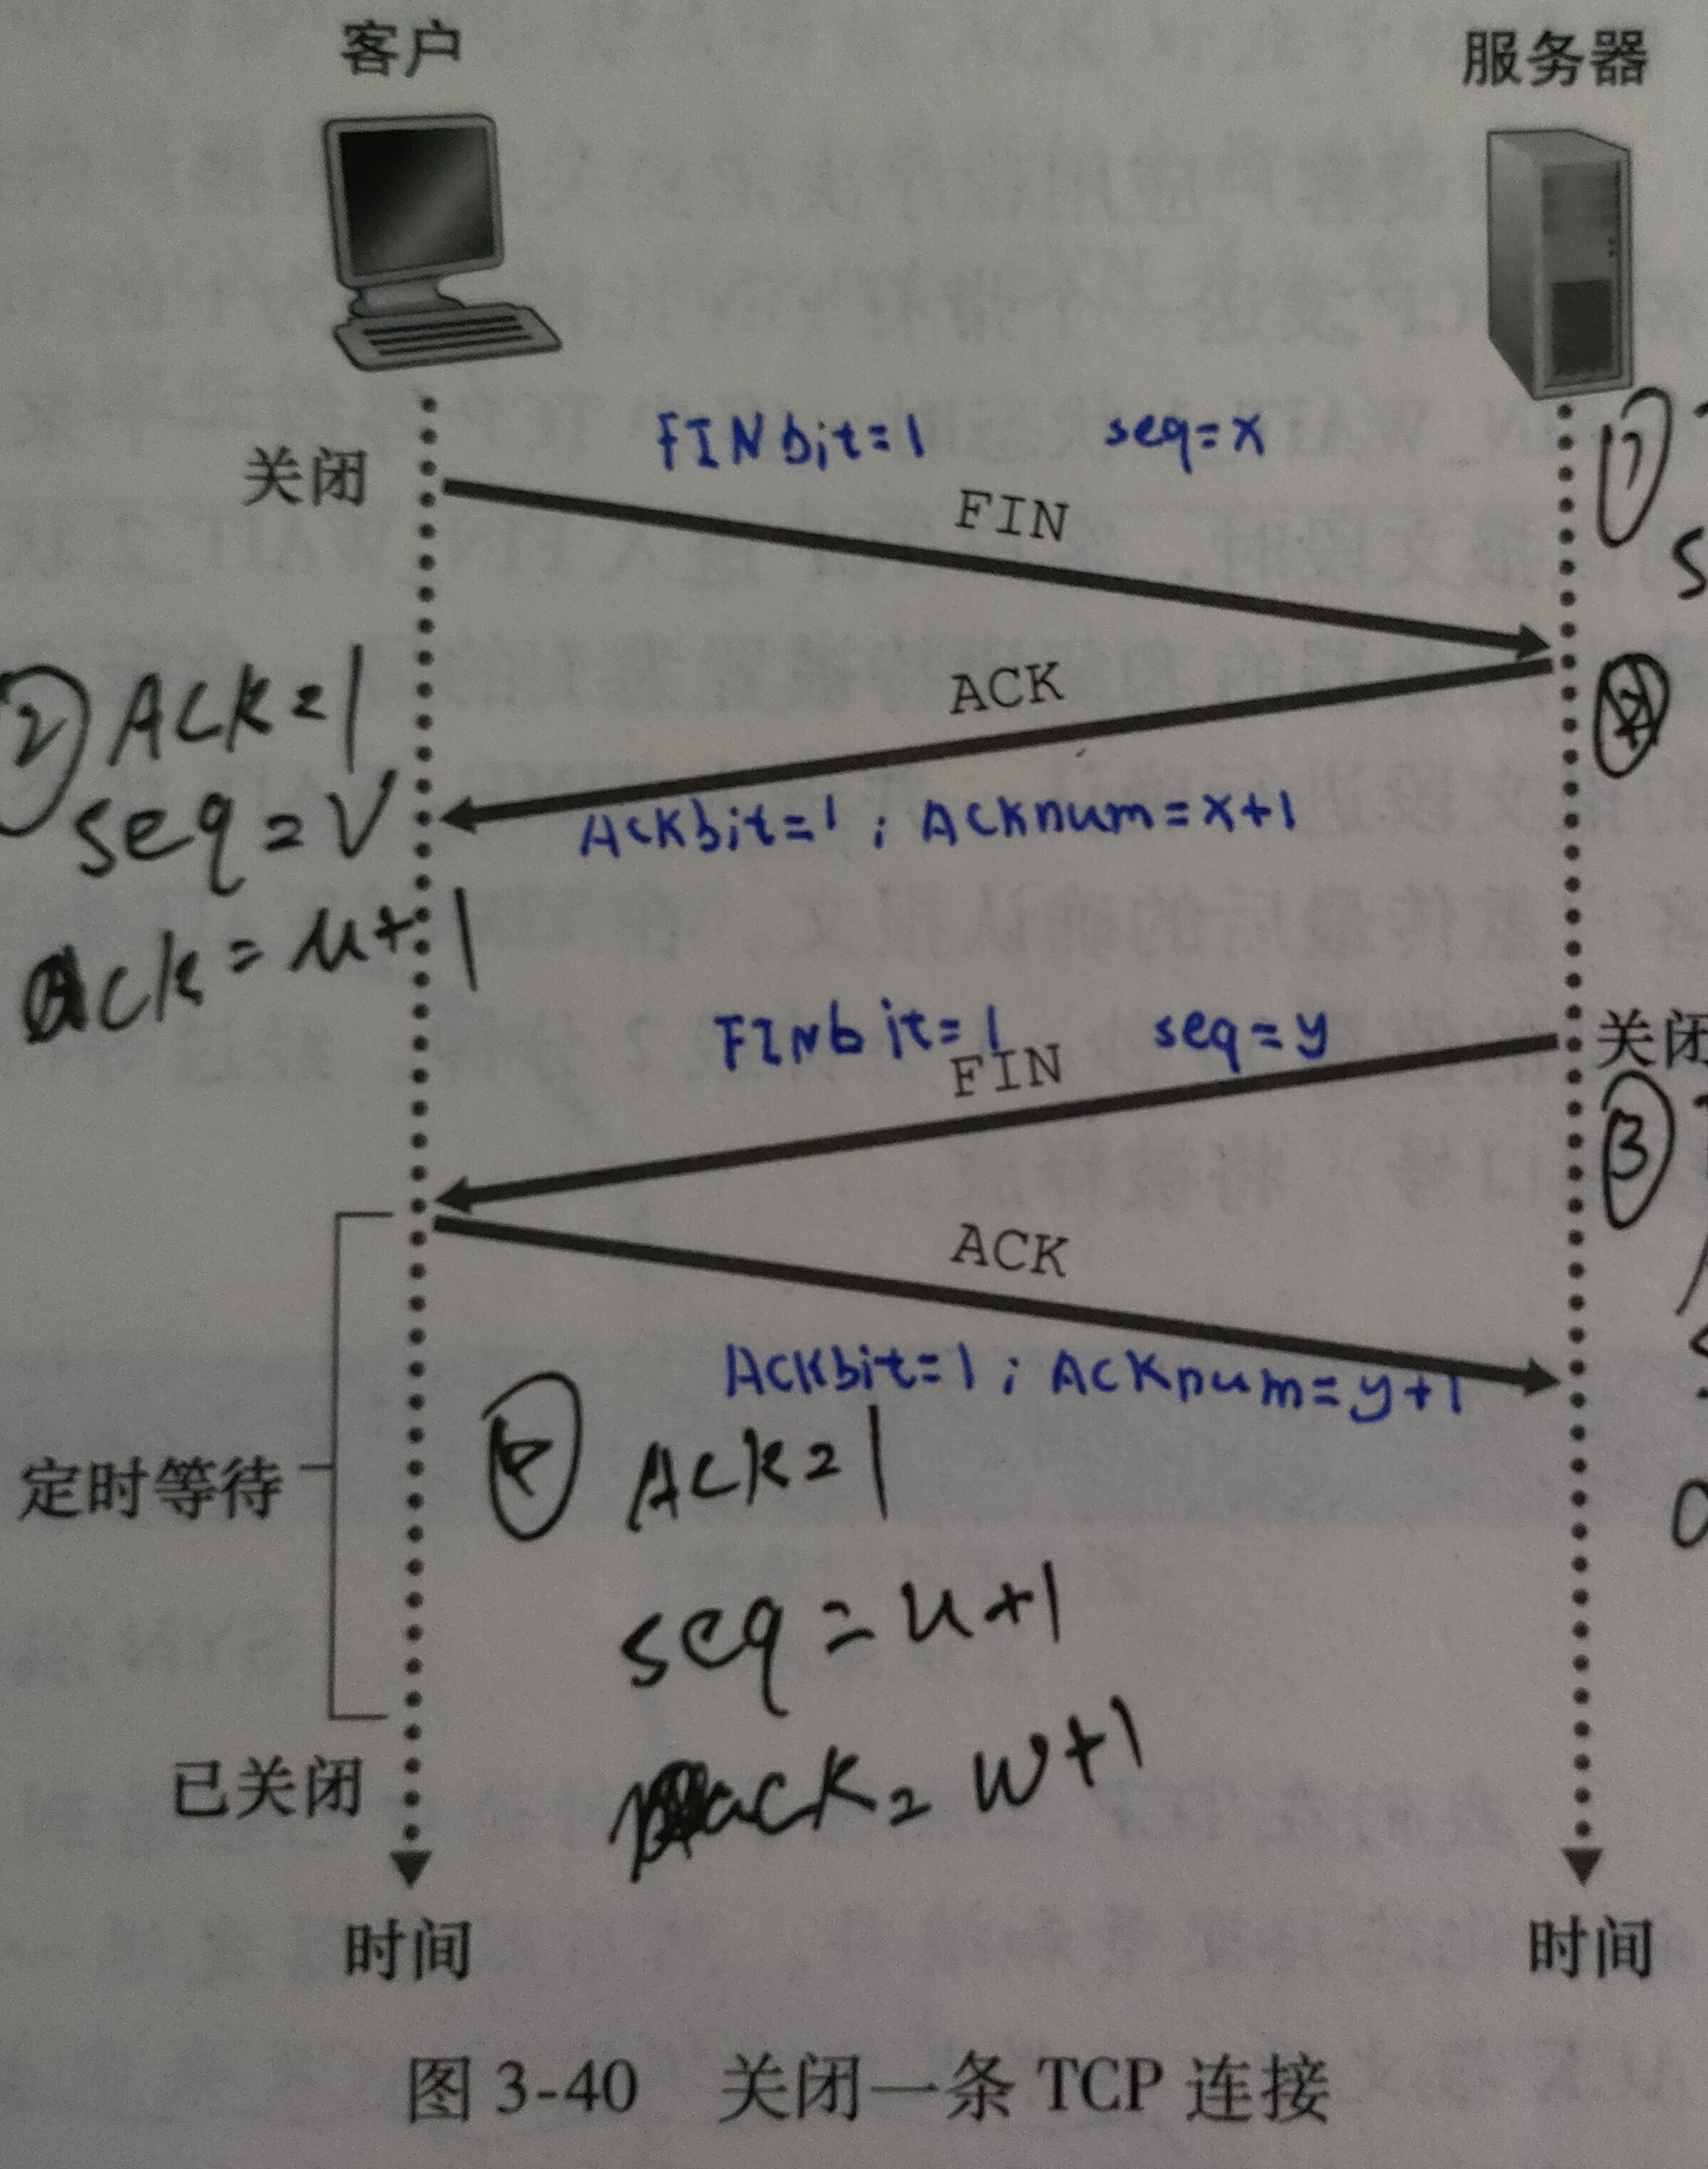 客户
服务器
FINbit=1 seq=x
关闭
FIN
①
ACK
② ACK=1
seq=V
ACKbit=1; ACKnum=x+1
ack=u+1
FINbit=1 seq=y
关闭
FIN
③
ACK
ACKbit=1; ACKnum=y+1
④ ACK=1
定时等待
seq=u+1
ack=w+1
已关闭
时间
时间
图 3-40 关闭一条 TCP 连接